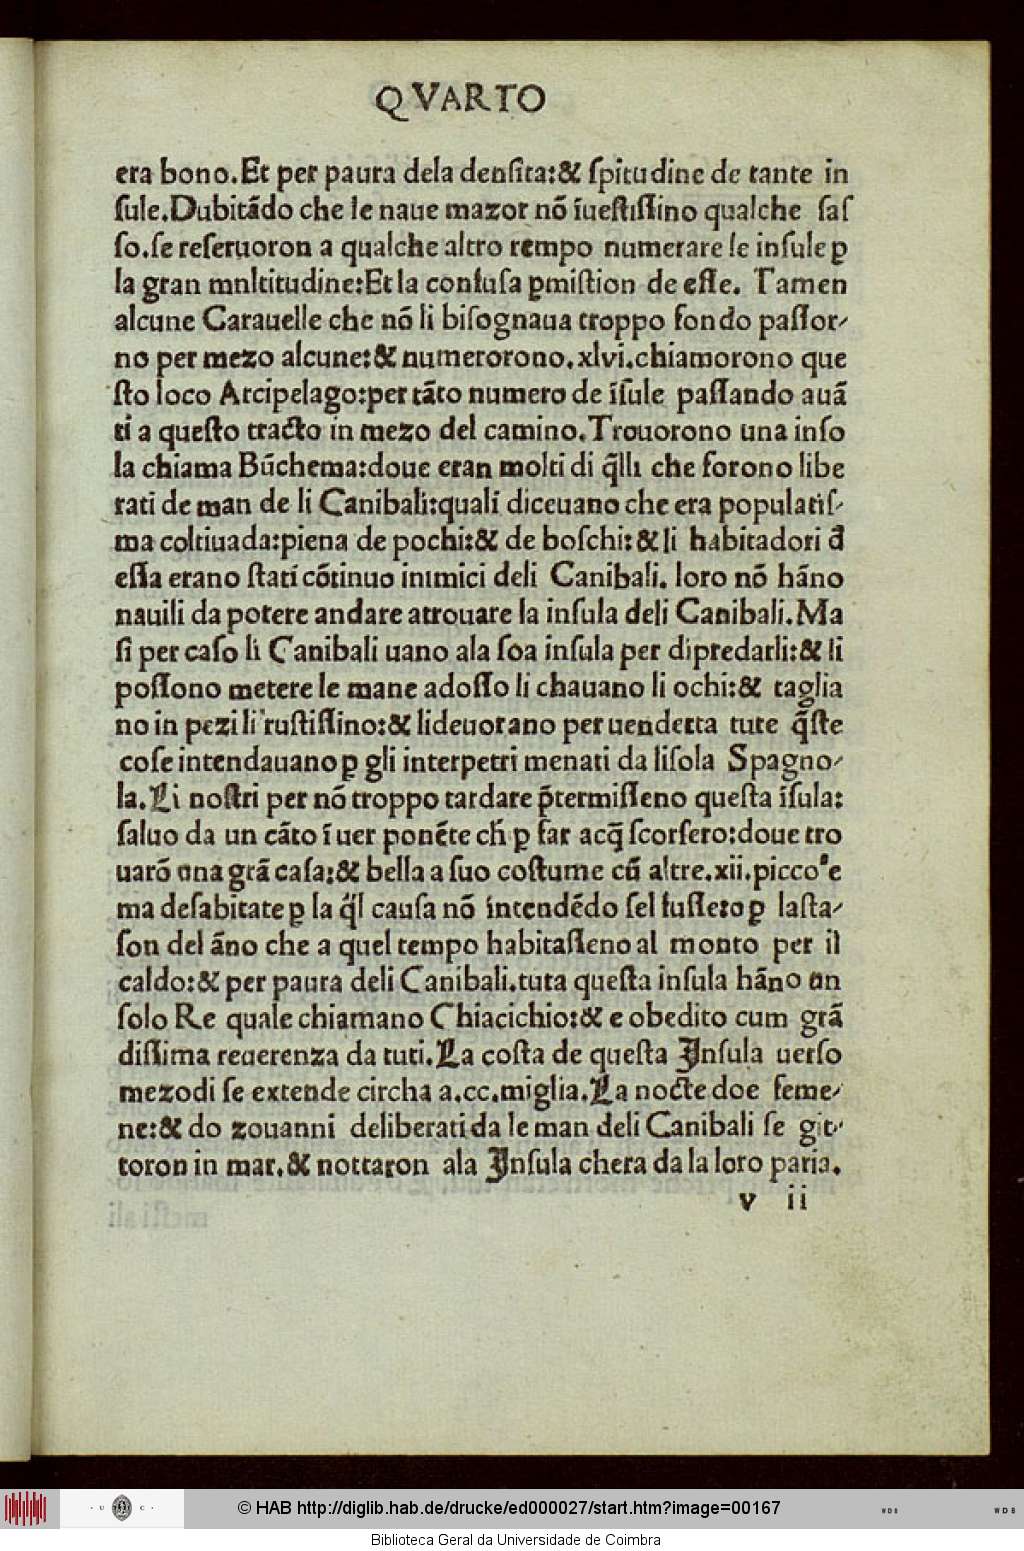 QVARTO
era bono.Et per paura dela densita:& spitudine de tante in
sule.Dubitādo che le naue mazor nō īuestissino qualche sas
so.se reseruoron a qualche altro tempo numerare le insule ꝑ
la gran mnltitudine:Et la confusa ꝑmistion de esse. Tamen
alcune Carauelle che nō li bisognaua troppo fondo passor-
no per mezo alcune:& numerorono.xlvi.chiamorono que
sto loco Arcipelago:per tāto numero de īsule passando auā
ti a questo tracto in mezo del camino.Trouorono una inso
la chiama Būchema:doue eran molti di q̄lli che forono libe
rati de man de li Canibali:quali diceuano che era populatis-
ma coltiuada:piena de pochi:& de boschi:& li habitadori d̄
essa erano stati cōtinuo inimici deli Canibali. loro nō hāno
nauili da potere andare atrouare la insula deli Canibali.Ma
si per caso li Canibali uano ala soa insula per dipredarli:& li
possono metere le mane adosso li chauano li ochi:& taglia
no in pezi li rustissino:& lideuorano per uendetta tute q̄ste
cose intendauano ꝑ gli interpetri menati da lisola Spagno-
la.Li nostri per nō troppo tardare p̄termisseno questa īsula:
saluo da un cāto ī uer ponēte ch̄ ꝑ far acq̄ scorsero:doue tro
uarō una grā casa:& bella a suo costume cū altre.xii.picco'e
ma desabitate ꝑ la q̄l causa nō intendēdo sel fusseto ꝑ lasta-
son del āno che a quel tempo habitasseno al monto per il
caldo:& per paura deli Canibali.tuta questa insula hāno un
solo Re quale chiamano Chiacichio:& e obedito cum grā
dissima reuerenza da tuti.La costa de questa Insula uerso
mezodi se extende circha a.cc.miglia.La nocte doe feme-
ne:& do zouanni deliberati da le man deli Canibali se git-
toron in mar.& nottaron ala Insula chera da la loro paria.
v ii
© HAB http://diglib.hab.de/drucke/ed000027/start.htm?image=00167
· U C ·
WDB
WDB
Biblioteca Geral da Universidade de Coimbra